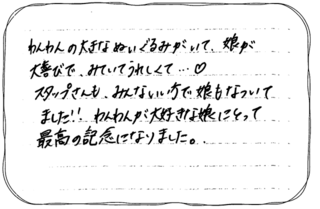 わんわんの大きなぬいぐるみがいて、娘が
大喜びで、みていてうれしくて…♡
スタッフさんも、みんないい方で娘もなついて
ました!! わんわんが大好きな娘にとって
最高の記念になりました。